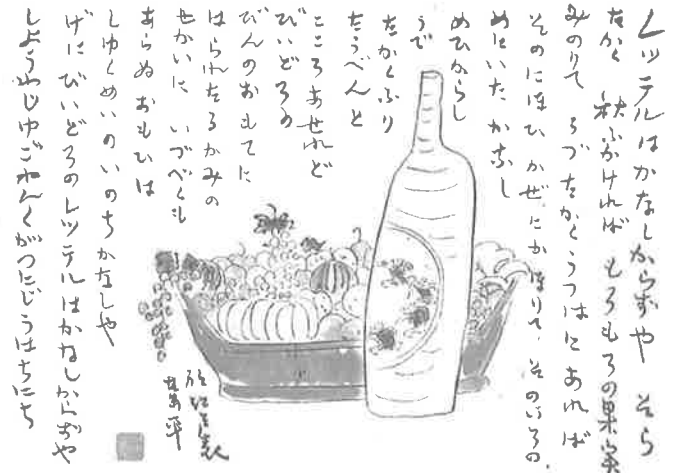 レッテルはかなしからずや そら
たかく 秋ふかければ もろもろの果実
みのりて うづたかくうつはにあれば
そのにほひ かぜにかほりて、そのいろの、
めにいた かなし
めひからし
うで
たかくふり
たうべんと
こころあせれど
びいどろの
びんのおもてに
はられたるかみの
せかいに いづべくも
あらぬ おもひは
しゆくめいのいのちかなしや
げに びいどろのレッテルはかなしからずや
しようわじゆごねんくがつにじうはちにち